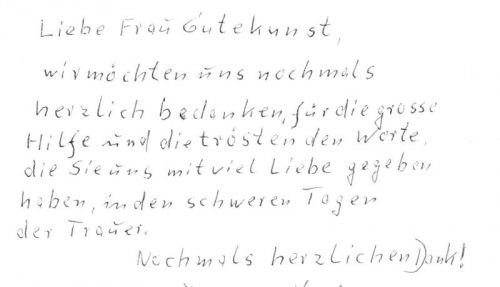 Liebe Frau Gutekunst,
wir möchten uns nochmals
herzlich bedanken, für die grosse
Hilfe und die tröstenden Worte,
die Sie uns mit viel Liebe gegeben
haben, in den schweren Tagen
der Trauer.
Nochmals herzlichen Dank!